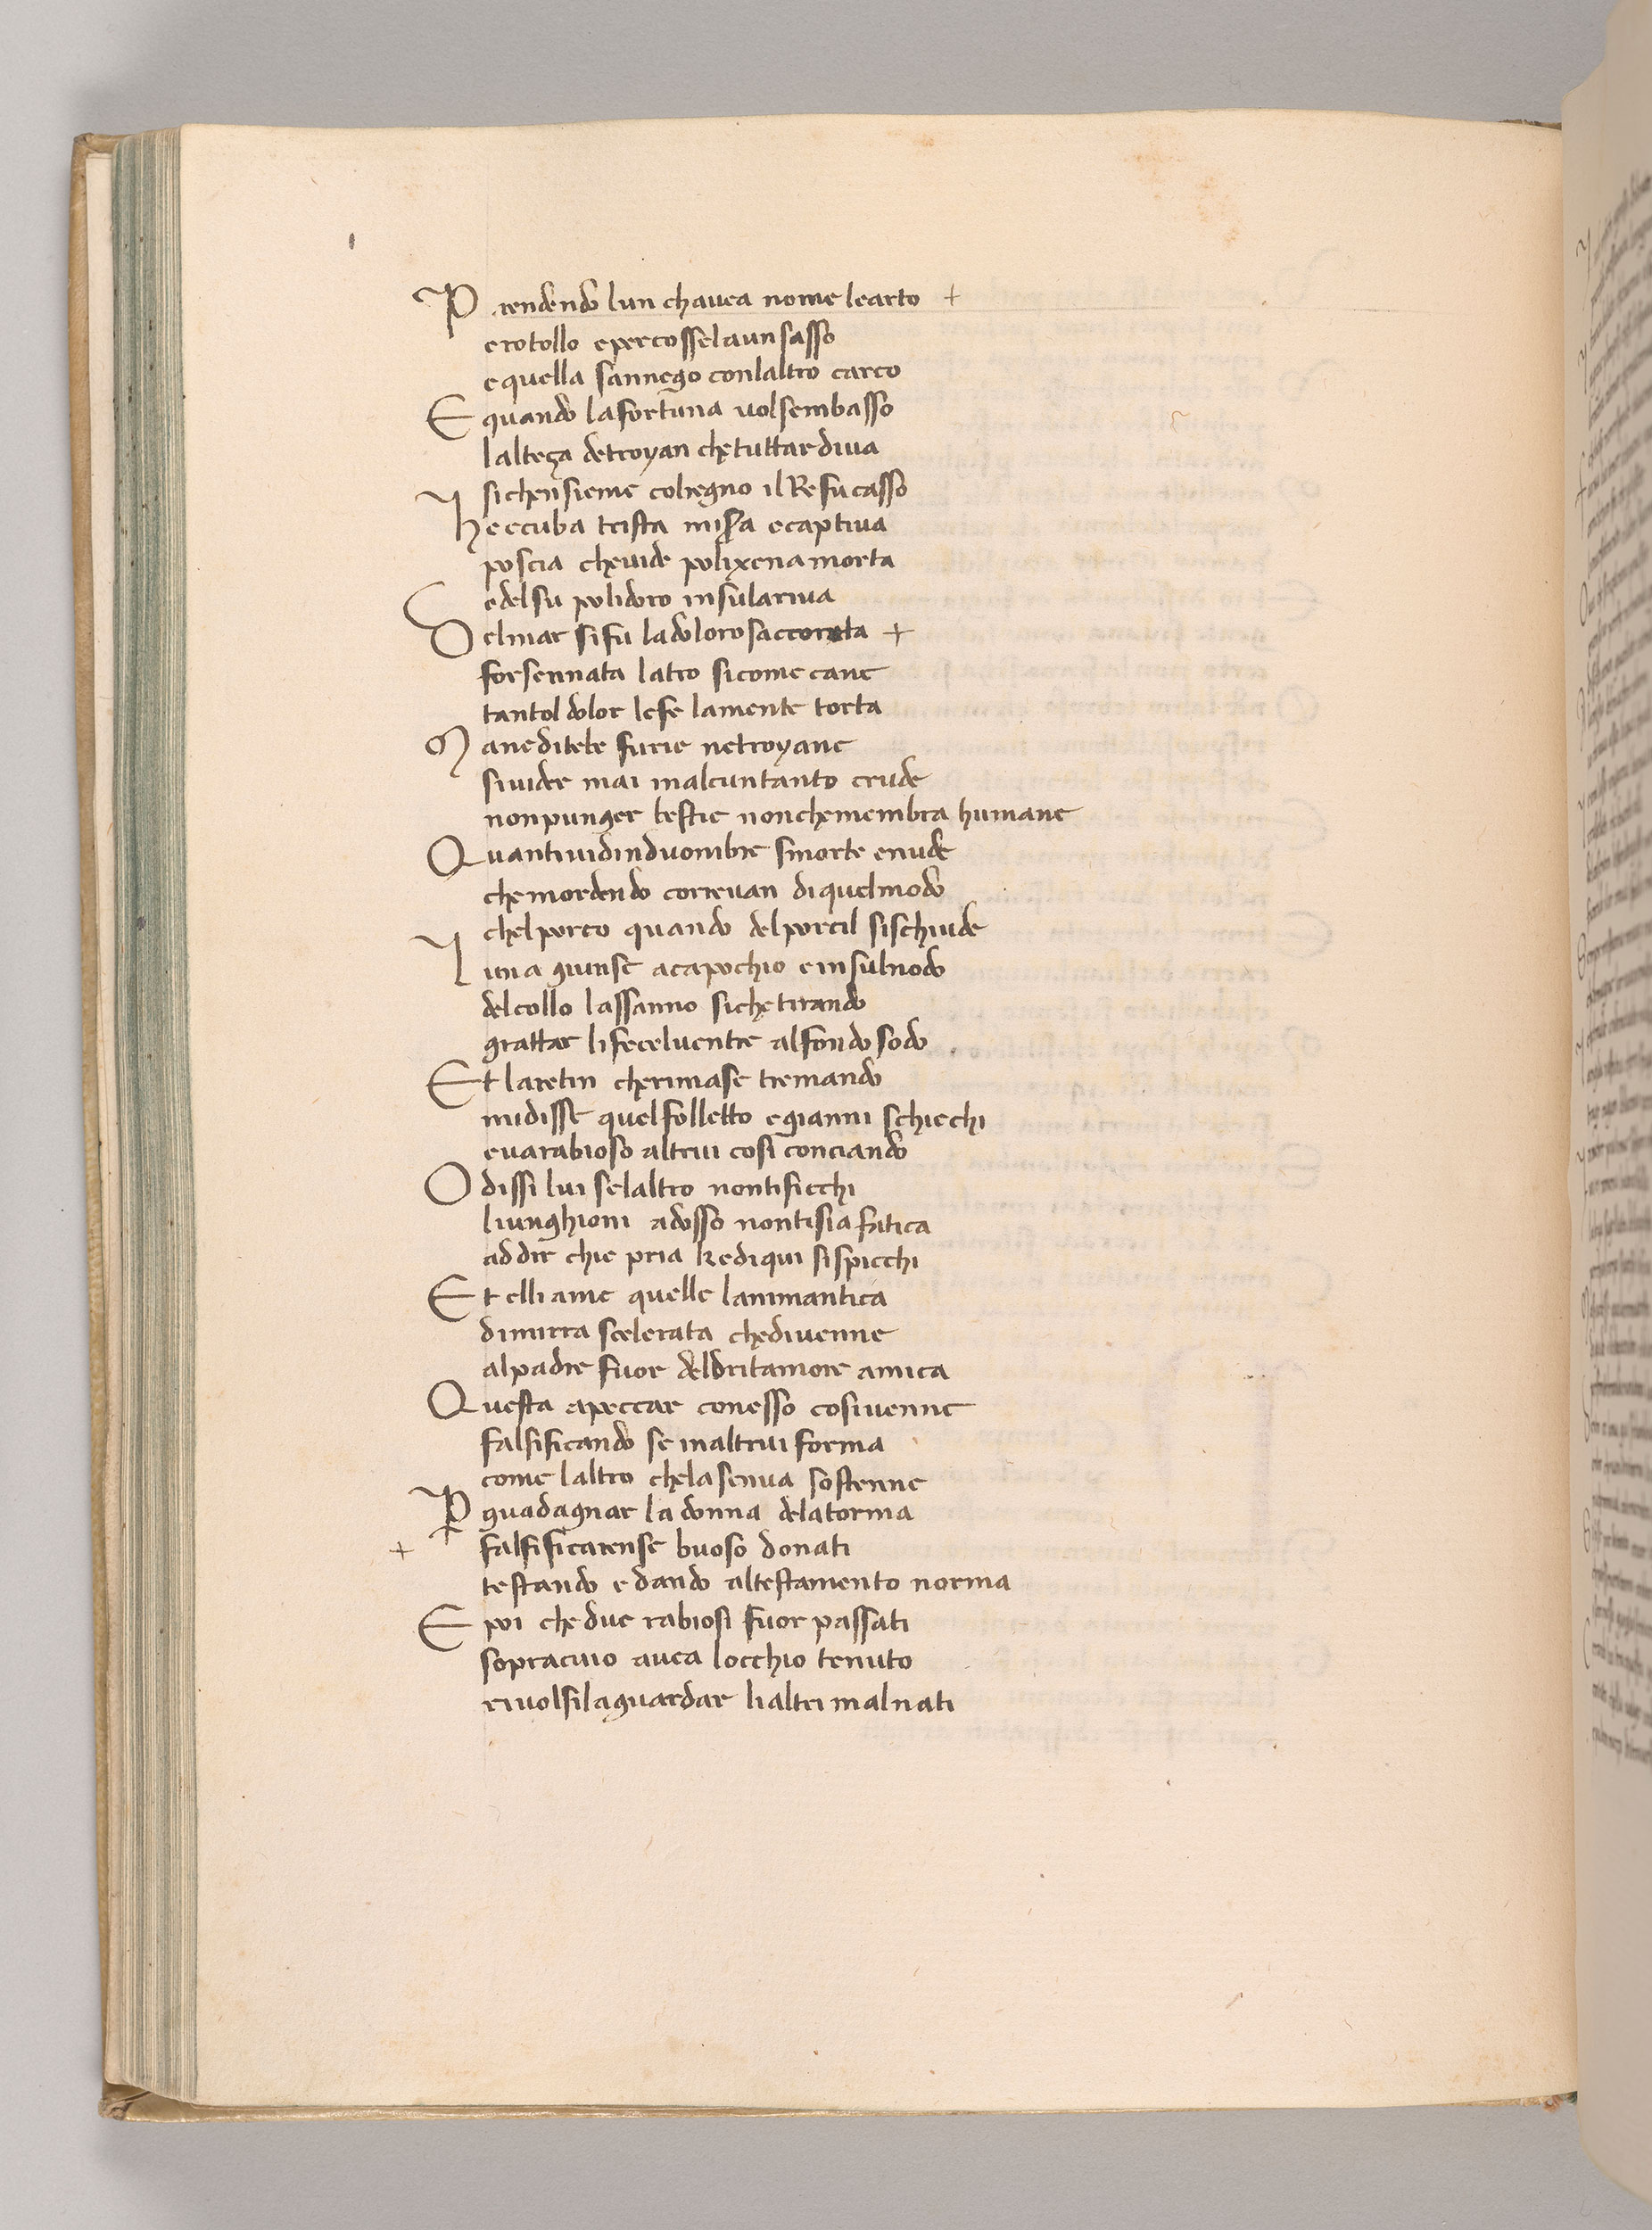 Prendendo lun chauea nome learto +
erotollo epercosselaun sasso
equella sannego conlaltro carco
E quando lafortuna uolsembasso
lalteça detroyan chetuttardiua
sichensieme colregno il Re fu casso
Heecuba trista misa ecaptiua
poscia cheuide polixena morta
edelsu polidoro insulariua
Delmar sifu ladolorosaccorata +
forsennata latro sicome cane
tantol dolor lefe lamente torta
Maneditebe furie netroyane
siuider mai inalcuntanto crude
nonpunger bestie nonchemembra humane
Quantiuidinduombre smorte enude
chemordendo correuan diquelmodo
chelporco quando delporcil sischiude
Luna giunse acapochio einsulnodo
delcollo lassanno sichetirando
grattar lifeceluentre alfondo sodo
Et laretin cherimase tremando
midisse quelfolletto egianni schicchi
euarabioso altrui cosi conciando
O dissi lui selaltro nontificchi
liunghioni adosso nontisia fatica
addir chie pria kediqui sispicchi
Et elli ame quelle lanimantica
dimirra scelerata chediuenne
alpadre fuor deldritamore amica
Questa apeccar conesso cosiuenne
falsificando se inaltrui forma
come laltro chelasenua sostenne
P guadagnar la donna delatorma
+ falsificarense buoso donati
testando e dando altestamento norma
E poi che due rabiosi fuor passati
sopracuio auea locchio tenuto
riuolsilaguardar lialtri malnati